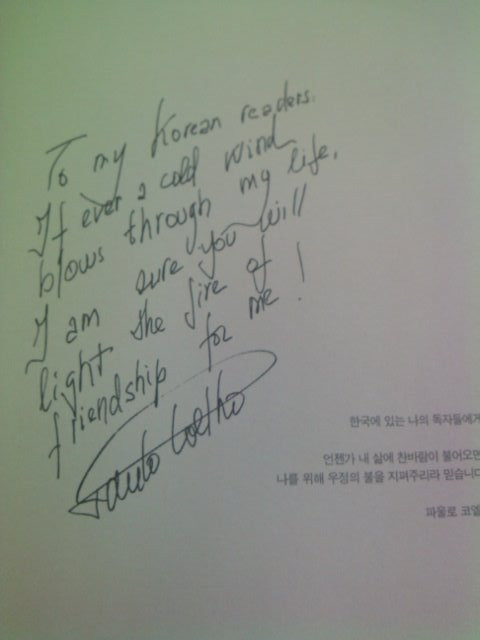 To my Korean readers.
If ever a cold wind
blows through my life,
I am sure you will
light the fire of
friendship for me!
Paulo Coelho
한국에 있는 나의 독자들에게
언젠가 내 삶에 찬바람이 불어오면
나를 위해 우정의 불을 지펴주리라 믿습니다
파울로 코엘